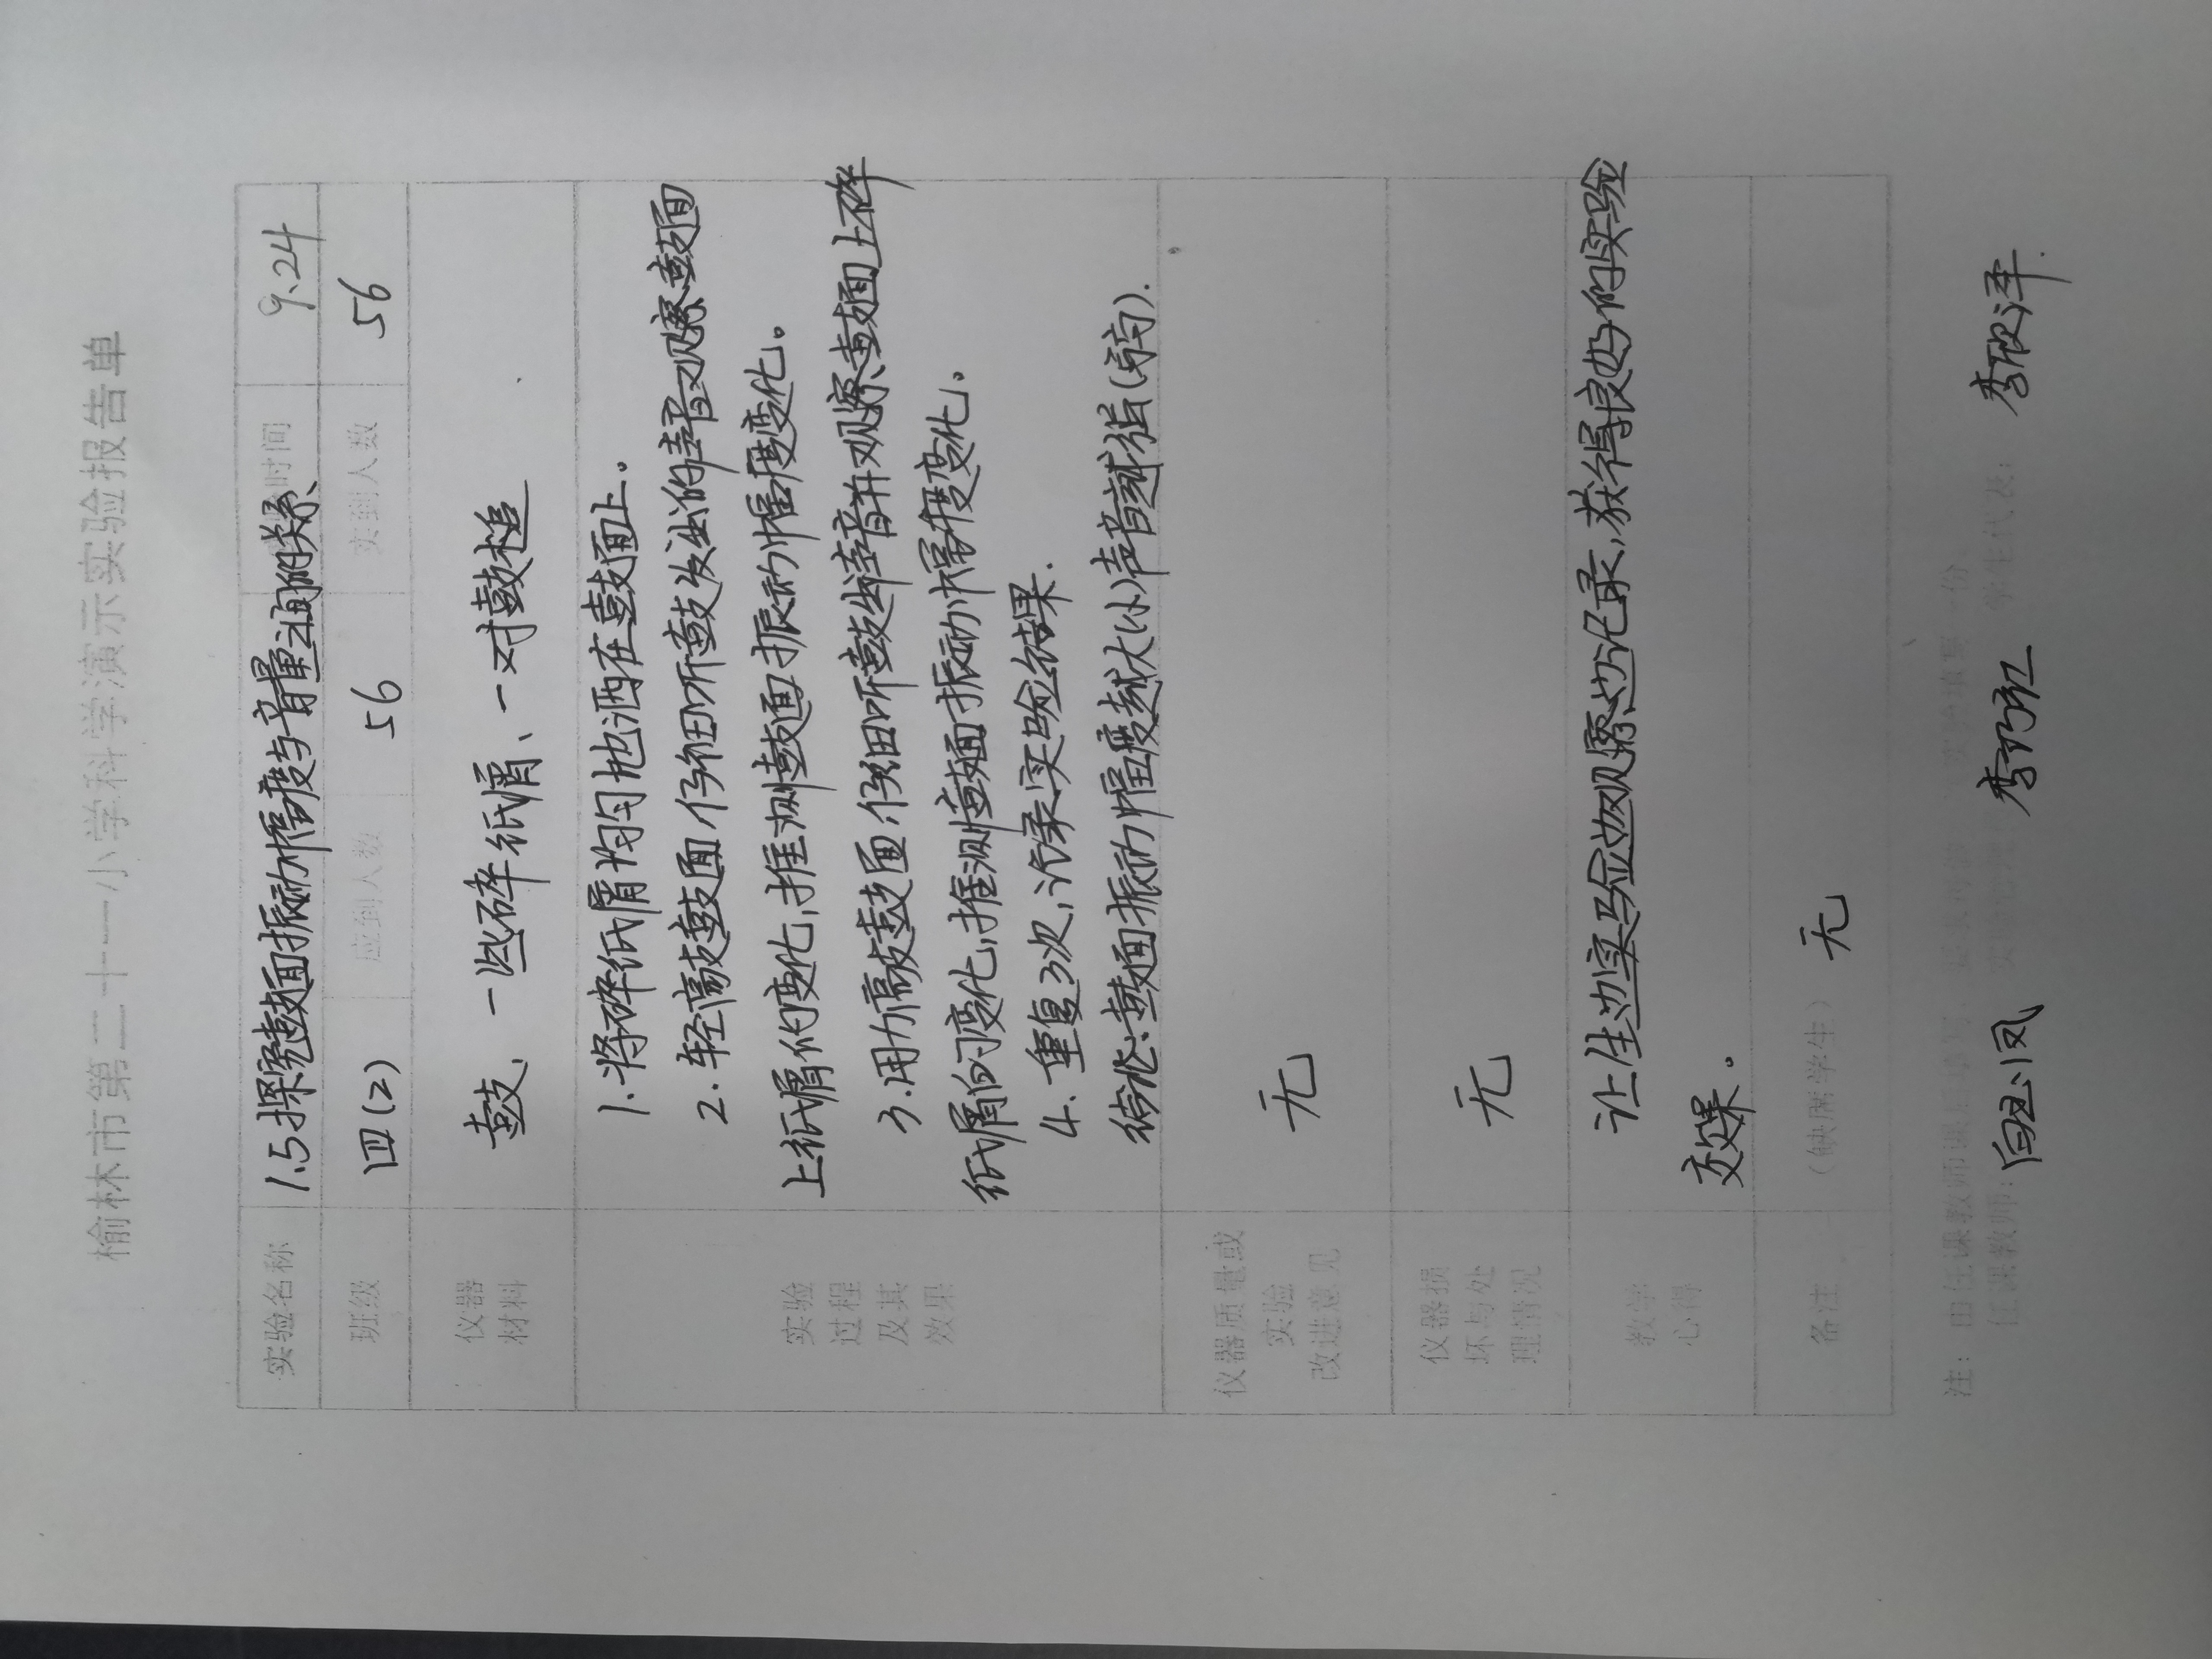 榆林市第二十一小学科学演示实验报告单
实验名称 1.5探究鼓面振动幅度与音量之间的关系 时间 9.24
班级 四(2) 应到人数 56 实到人数 56
仪器材料 鼓、一些碎纸屑、一对鼓槌
实验过程及其效果
1.将碎纸屑均匀地洒在鼓面上。
2.轻敲鼓面,仔细听鼓发出的声音,观察鼓面
上纸屑的变化,推测鼓面振动幅度变化。
3.用力敲鼓面,仔细听鼓出声音并观察鼓面上碎
纸屑的变化,推测鼓面振动幅度变化。
4.重复3次,记录实验结果.
结论:鼓面振动幅度越大(小)声音越强(弱).
仪器质量或实验改进意见 无
仪器损坏与处理情况 无
教学心得 让生边实验边观察边记录,获得良好的实验
效果。
备注 (缺席学生) 无
注:由任课教师课后填写
任课教师: 学生代表: 李欣泽